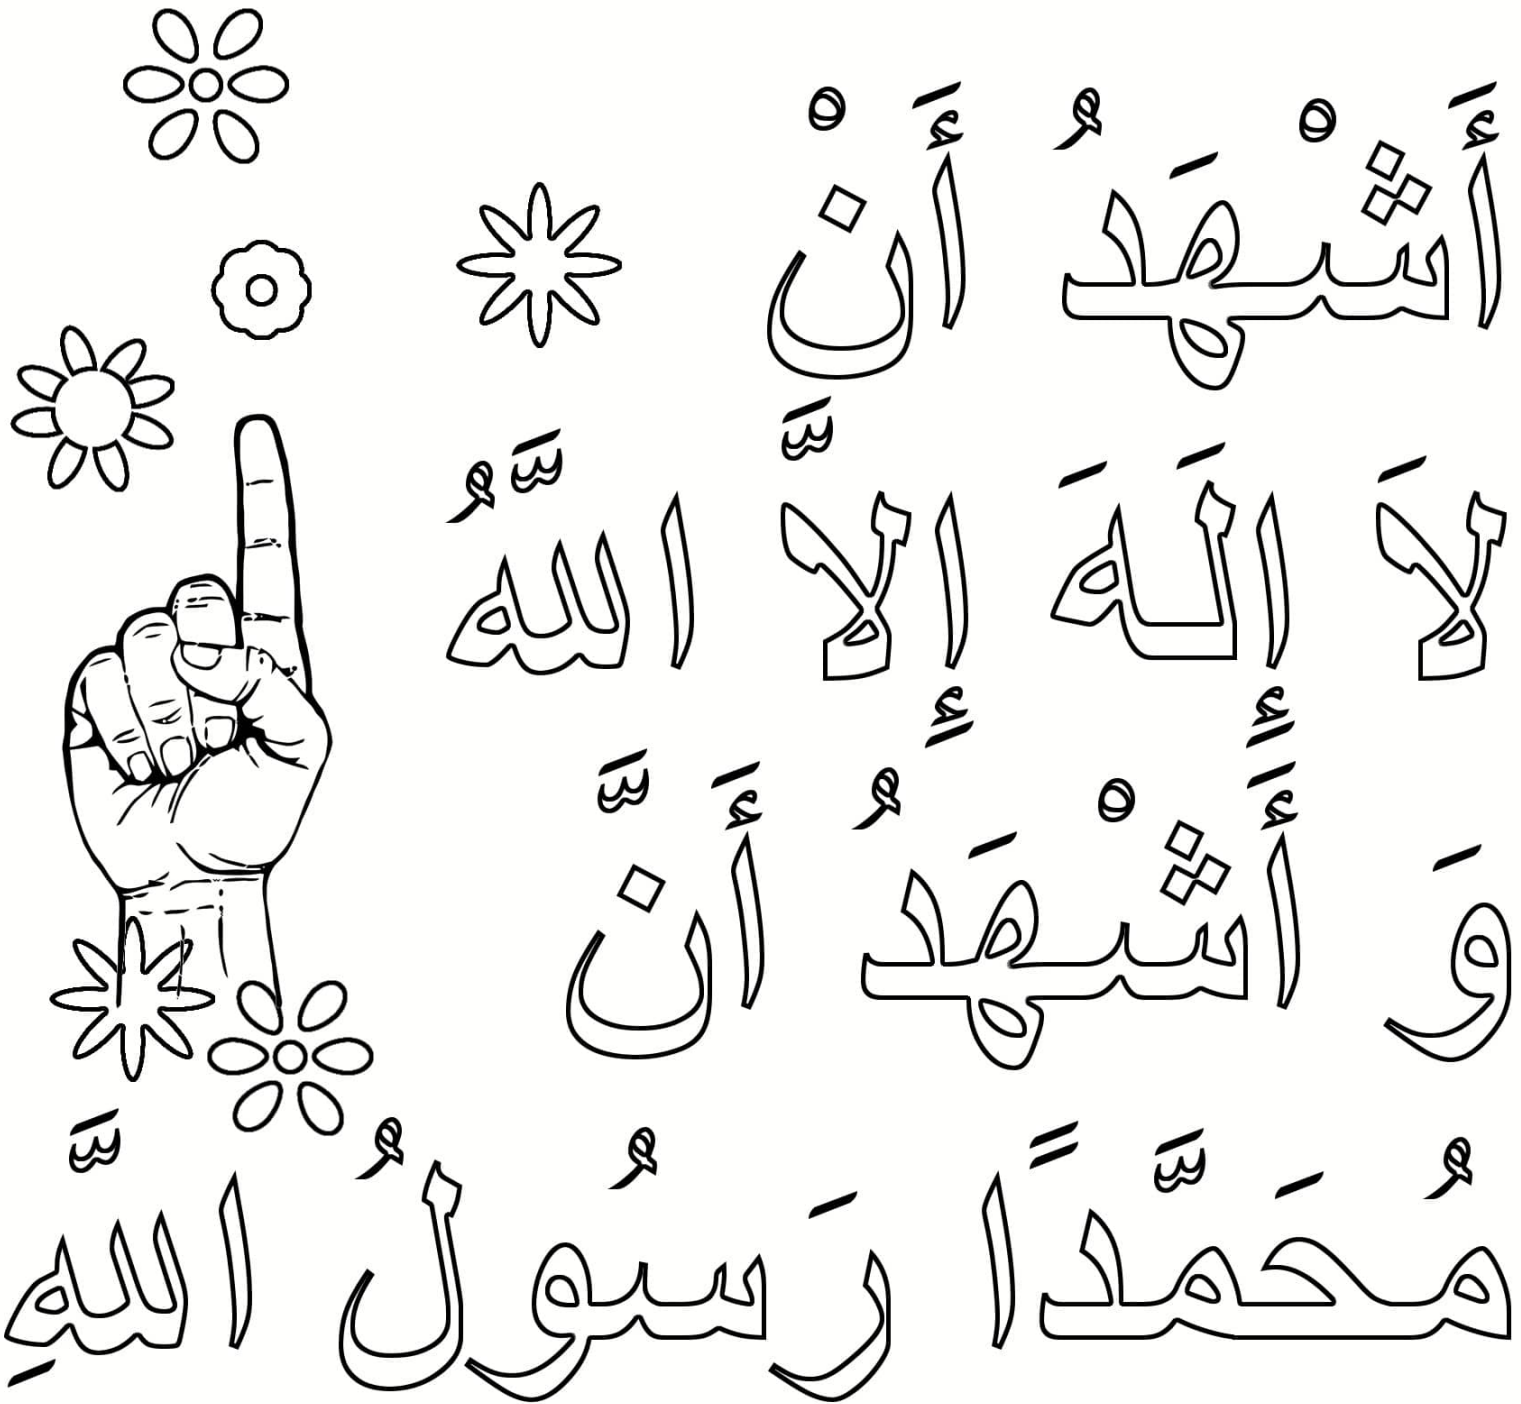 أَشْهَدُ أَنْ
لاَ إِلَهَ إِلاَّ اللَّهُ
وَ أَشْهَدُ أَنَّ
مُحَمَّدًا رَسُولُ اللَّهِ